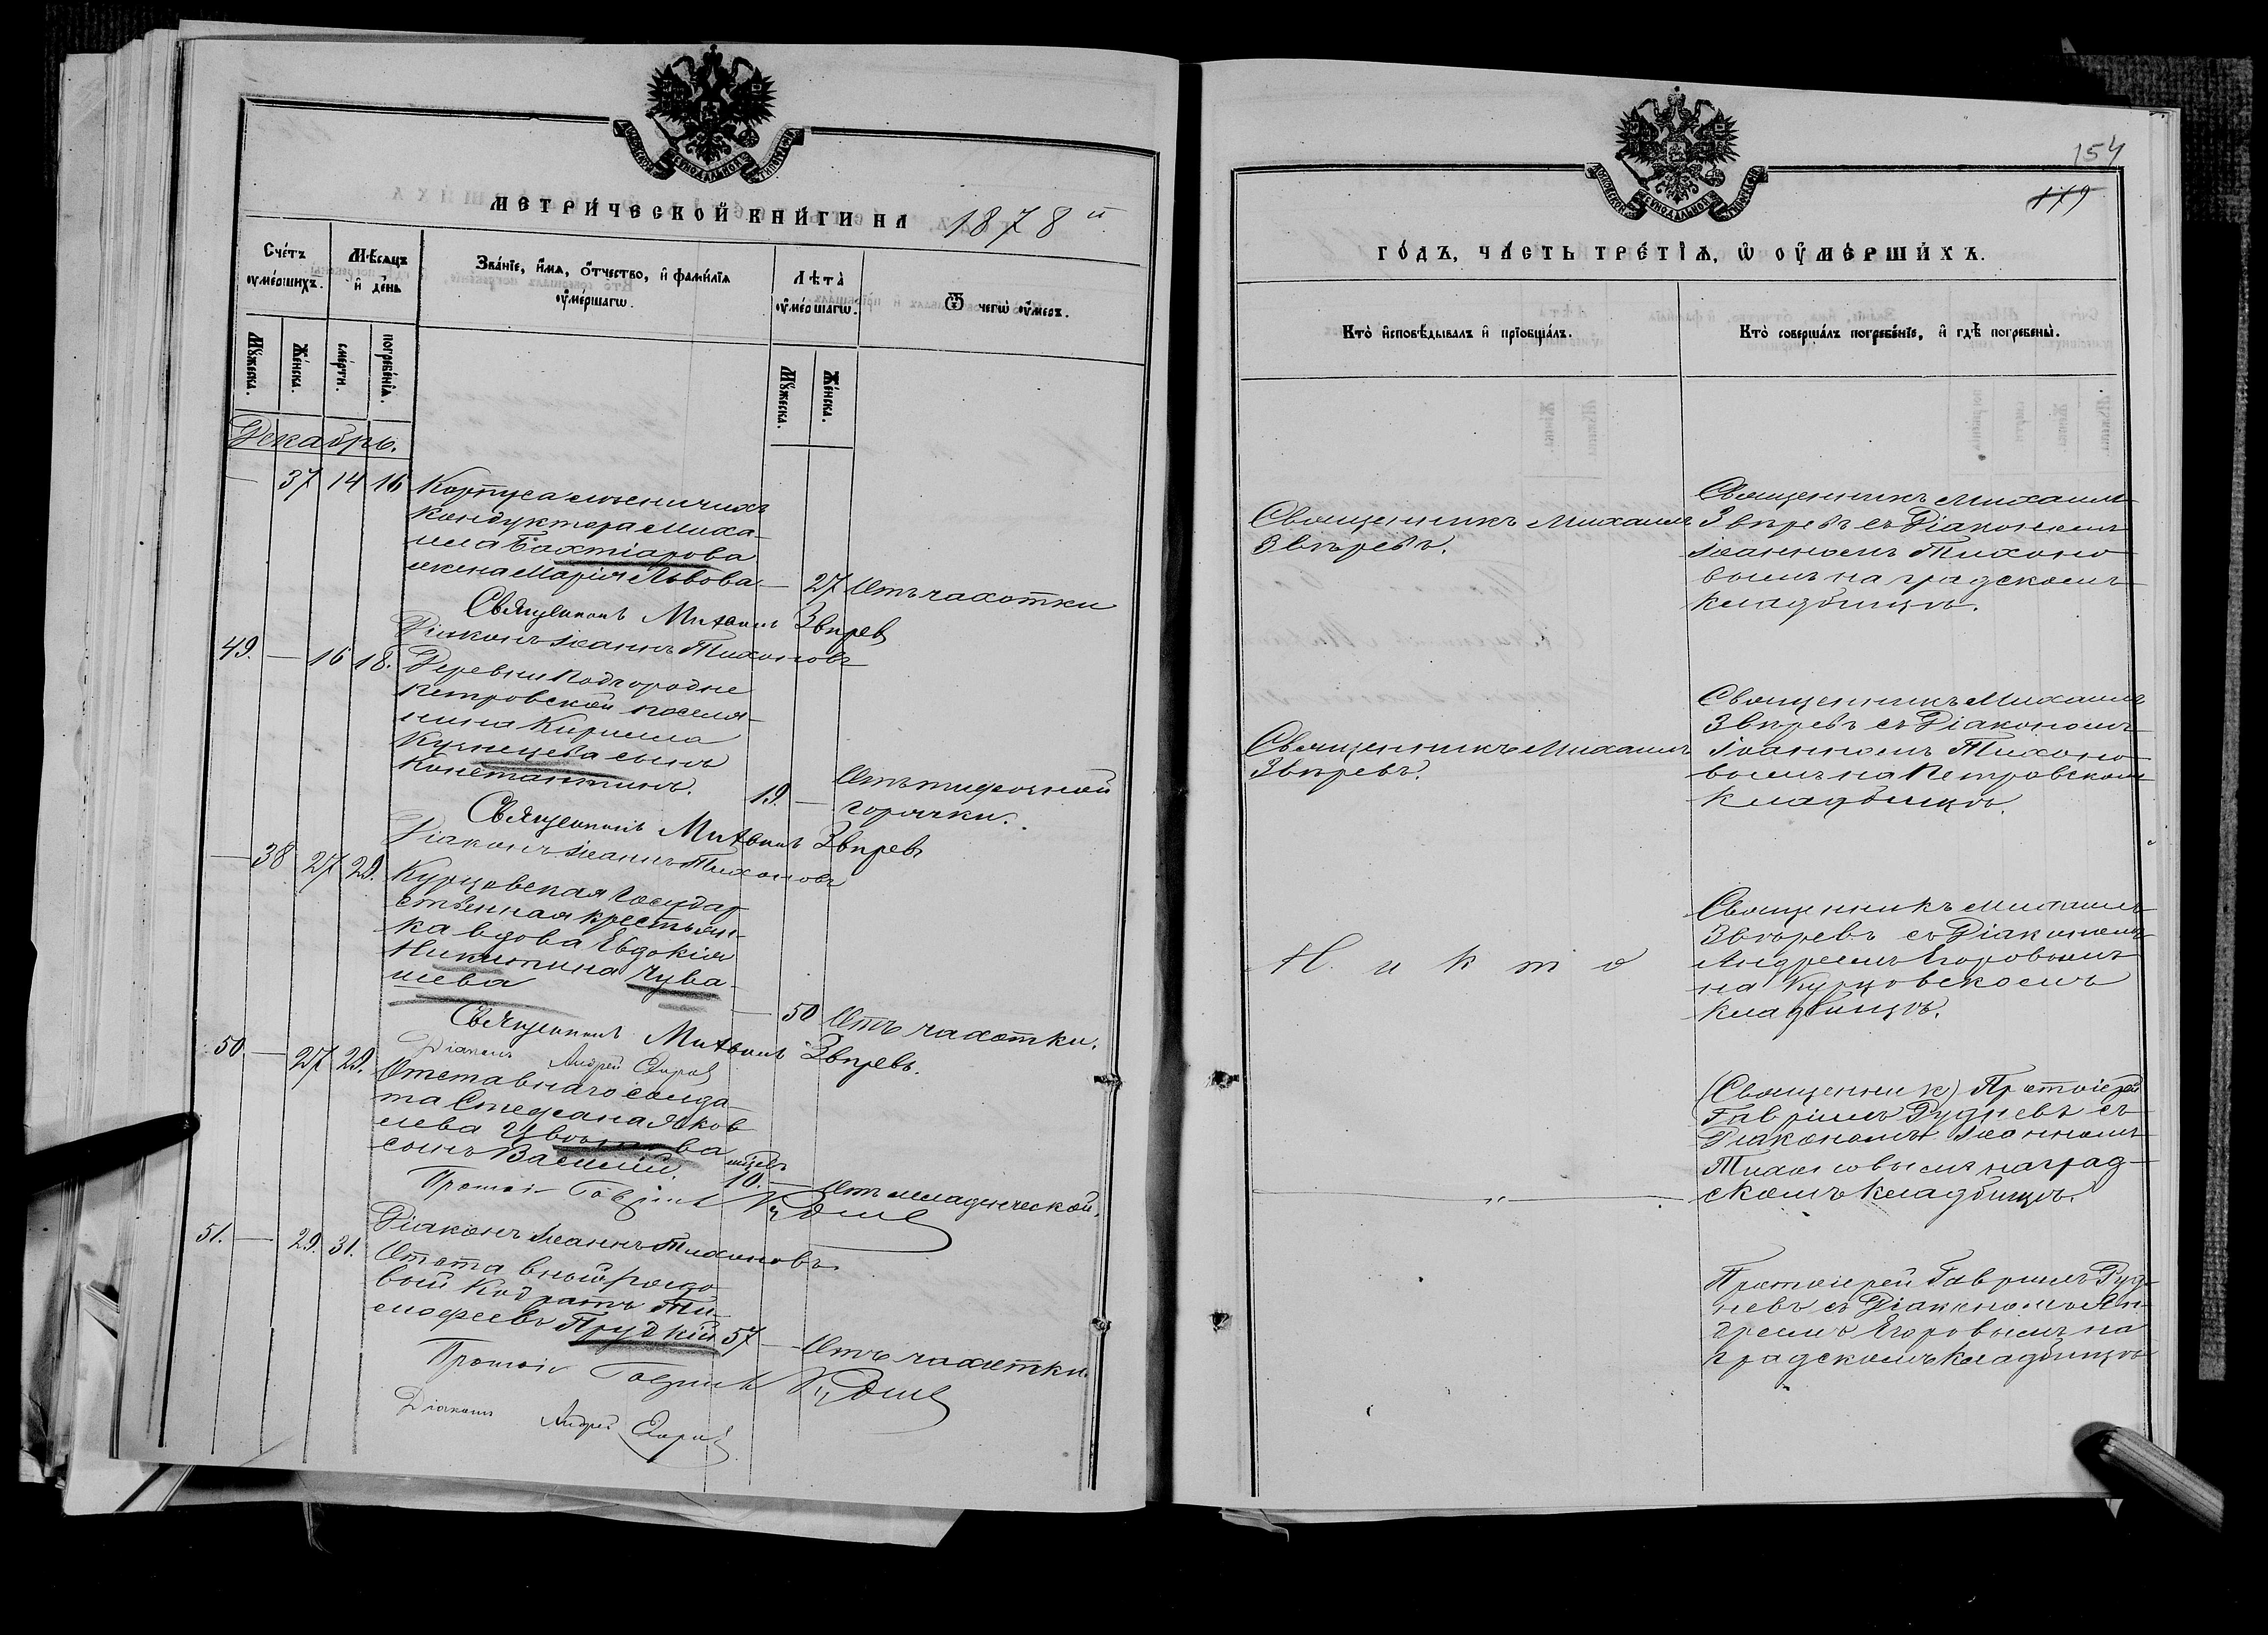 МОСКОВСКОЙ СѴНОДАЛЬНОЙ ТИПОГРАФІИ
МЕТРИ́ЧЕСКОЙ КНИ́ГИ НА 1878 й
Сче́тъ оу҆ме́ршихъ.
Мѣ́сяцъ и҆ де́нь
Зва́нїе, и҆́мѧ, ѻ҆́тчество, и҆ фами́лїѧ оу҆ме́ршагѡ.
Лѣта̀ оу҆ме́ршагѡ.
Ѿ чегѡ̀ оу҆́меръ.
Мꙋ́жеска.
Же́нска.
сме́рти.
погребе́нїѧ.
Мꙋ́жеска.
Же́нска.
Декабрь.
— 37 14 16 Корпуса лѣсничихъ
кондуктора Миха-
ила Бахтіарова
жена Марія Львова — 27 Отъ чахотки
Священникъ Михаилъ Звѣревъ
Діаконъ Іоаннъ Тихоновъ
49. — 16 18. Деревни Подгородне
Петровской поселя-
нина Кирилла
Кузнецова сынъ
Константинъ. 19. — Отъ тифозной
горячки.
Священникъ Михаилъ Звѣревъ
Діаконъ Іоаннъ Тихоновъ
— 38 27 29. Курцовская государ
ственная крестьян-
ка вдова Евдокія
Никитина Чува-
шева — 50 Отъ чахотки.
Священникъ Михаилъ Звѣревъ.
Діаконъ Андрей Егоровъ
50. — 27 29. Отставнаго солда-
та Стефана Яков
лева
сынъ Василій 10. — Отъ младенческой.
Протоі Гавріилъ Рудневъ
Діаконъ Іоаннъ Тихоновъ
51. — 29. 31. Отставный рядо
вой Кодратъ Ти-
мофеевъ Прудкій 57 — Отъ чахотки.
Протоі Гавріилъ Рудневъ
Діаконъ Андрей Егоровъ
МОСКОВСКОЙ СѴНОДАЛЬНОЙ ТИПОГРАФІИ
154
179
ГО́ДЪ, ЧА́СТЬ ТРЕ́ТЇѦ, Ѡ҆ ОУ҆МЕ́РШИХЪ.
Кто̀ и҆сповѣ́дывалъ и҆ прїобща́лъ.
Кто̀ соверша́лъ погребе́нїе, и҆ гдѣ̀ погребены̀.
Священникъ Михаилъ
Звѣревъ.
Священникъ Михаилъ
Звѣревъ съ Діакономъ
Іоанномъ Тихоно
вымъ на градскомъ
кладбищѣ.
Священникъ Михаилъ
Звѣревъ.
Священникъ Михаилъ
Звѣревъ съ Діакономъ
Іоанномъ Тихоно
вымъ на Петровскомъ
кладбищѣ.
Никто
Священникъ Михаилъ
Звѣревъ съ Діакономъ
Андреемъ Егоровымъ
на Курцовскомъ
кладбищѣ.
— „ —
(Священник) Протоіерей
Гавріилъ Рудневъ съ
Діакономъ Іоанномъ
Тихоновымъ на град-
скомъ кладбищѣ.
Протоіерей Гавріилъ Руд-
невъ съ Діакономъ Ан-
дреемъ Егоровымъ на
градскомъ кладбищѣ